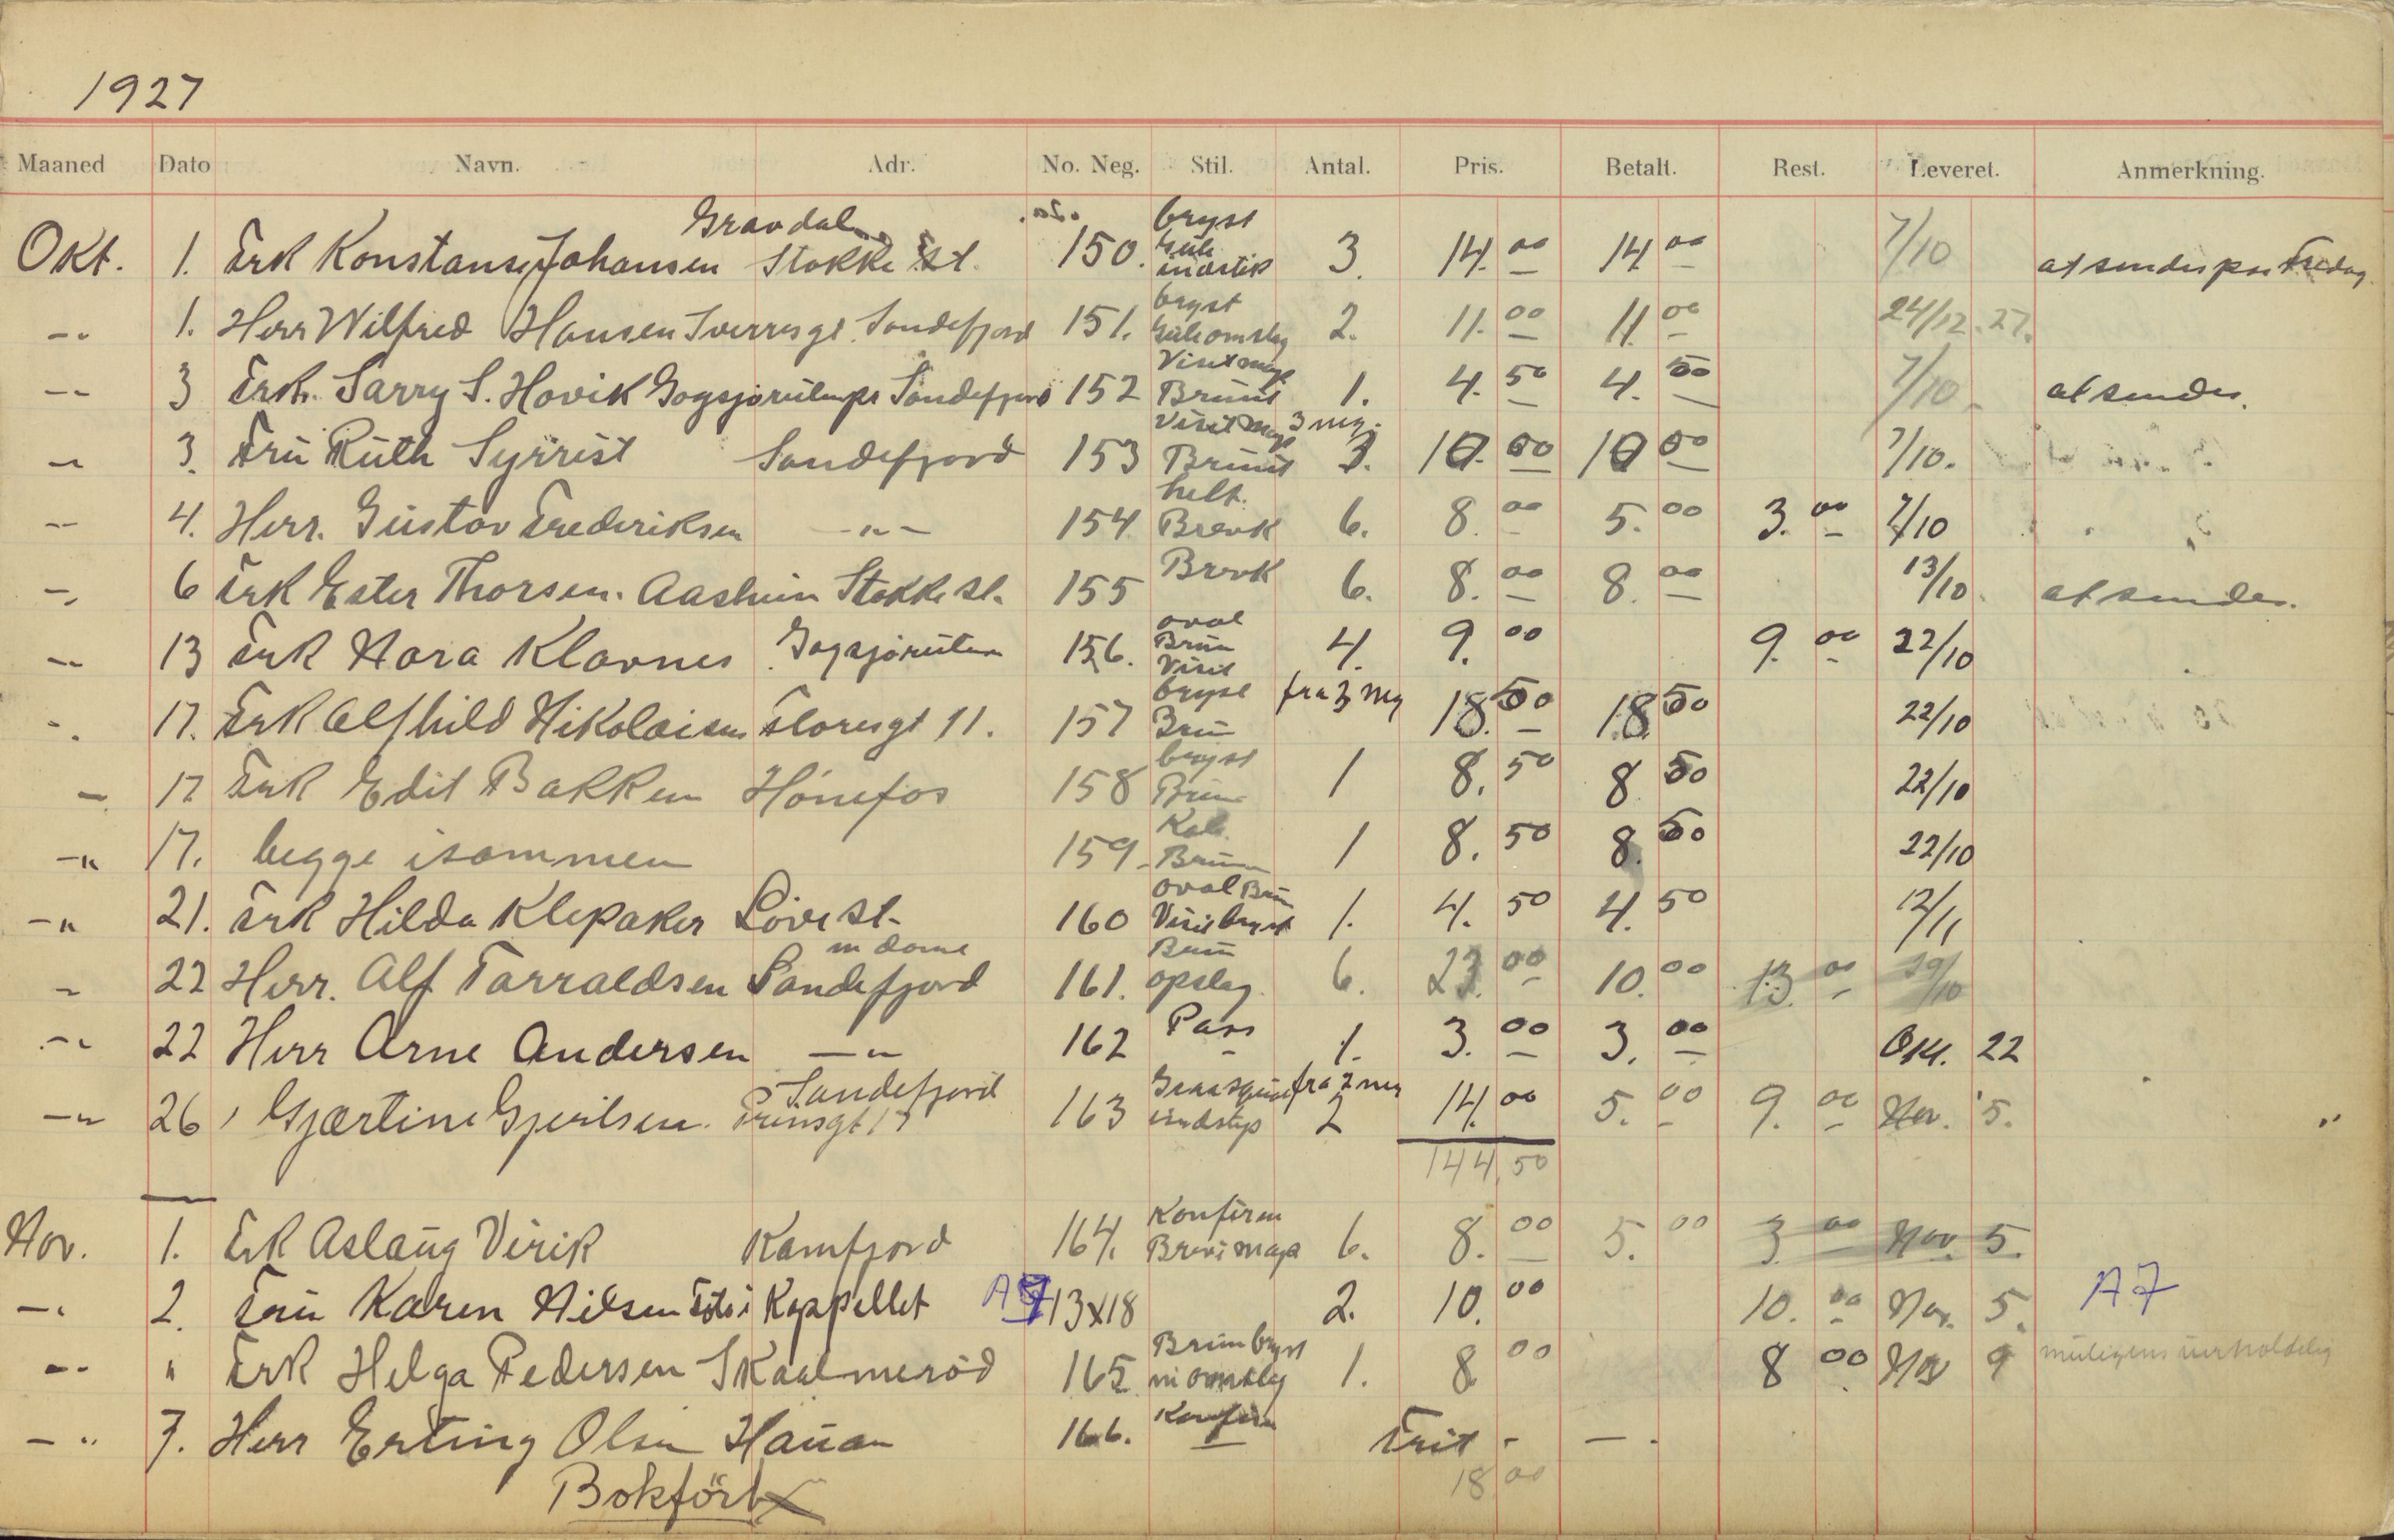 1927
Maaned Dato Navn. Adr. No. Neg. Stil. Antal. Pris. Betalt. Rest. Leveret. Anmerkning.
Okt. 1. Frk Konstanse Johansen Gravdal Stokke st. 150. bryst 3. 14.00 14.00 7/10 at sendes Fredag
-"- 1. Herr Wilfred Hansen Sverresgt. Sandefjord 151. bryst omslag 2. 11.00 11.00 24/12.27.
-"- 3 Frk. Sarry S. Hovik Sandefjord 152 Visit Brunt 1. 4.50 4.50 7/10 at sendes.
-"- 3. Fru Ruth Syrrist Sandefjord 153 Visit Brunt 3 neg. 3. 10.00 10.00 7/10.
-"- 4. Herr. Gustav Frederiksen -"- 154 helt. Brevk 6. 8.00 5.00 3.00 7/10
-"- 6 Frk Ester Thorsen. Aasheim Stokke st. 155 Brevk 6. 8.00 8.00 13/10. at sendes.
-"- 13 Frk Nora Klavnes Gogsjøruten 156. oval Brun Visit 4. 9.00 9.00 22/10
-"- 17. Frk Alfhild Nikolaisen Floresgt 11. 157 bryst Brun fra 3 neg 18.50 18.50 22/10
- 17 Frk Edit Bakken Hønefos 158 bryst Brun 1 8.50 8.50 22/10
-"- 17. begge isammen 159. Kab. Brun 1 8.50 8.50 22/10
-"- 21. Frk Hilda Klepaker Løve st. 160 oval Brun Visit bryst 1. 4.50 4.50 12/11
-"- 22 Herr. Alf Tarraldsen m dame Sandefjord 161. Brun opslag. 6. 23.00 10.00 13.00 29/10
-"- 22 Herr Arne Andersen -"- 162 Pass 1. 3.00 3.00 Okt. 22
-"- 26 Gjærtine Sandefjord Prinsgt 17 163 fra 2 neg 2 14.00 5.00 9.00 Nov. 5.
144,50
Nov. 1. Frk Aslaug Virik Kamfjord 164. Konfirm 6. 8.00 5.00 3.00 Nov. 5.
-"- 2. Fru Karen Nilsen Foto i Kappellet A7 13x18 2. 10.00 10.00 Nov. 5. A7
-"- " Frk Helga Pedersen Skaalmerød 165 Brun bryst m omslag 1. 8.00 8.00 Nov 9 muligens uerholdelig
-"- 7. Herr Erling Olsen Hauan 166. Konfirm Frit - - .
18.00
Bokført